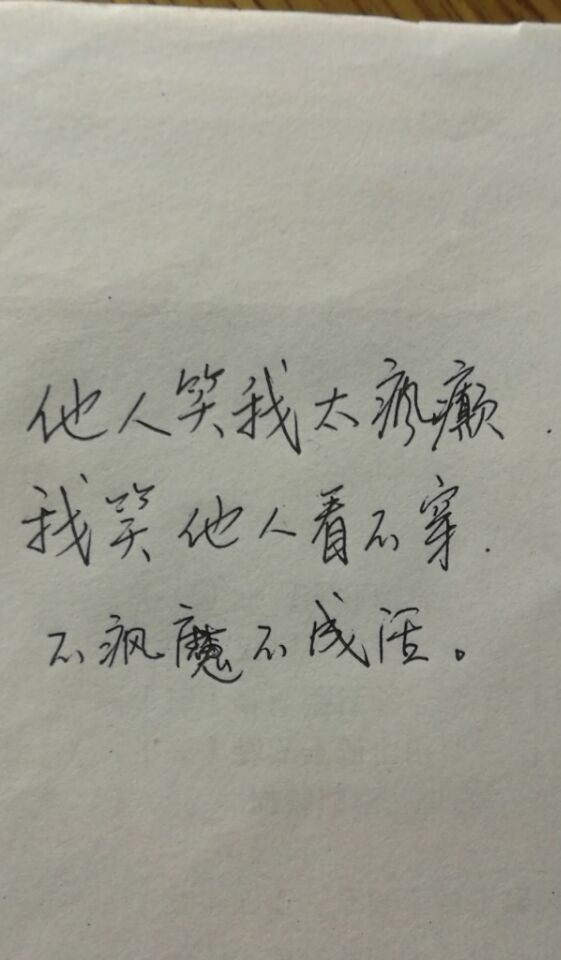 他人笑我太疯癫.
我笑他人看不穿.
不疯魔不成活。